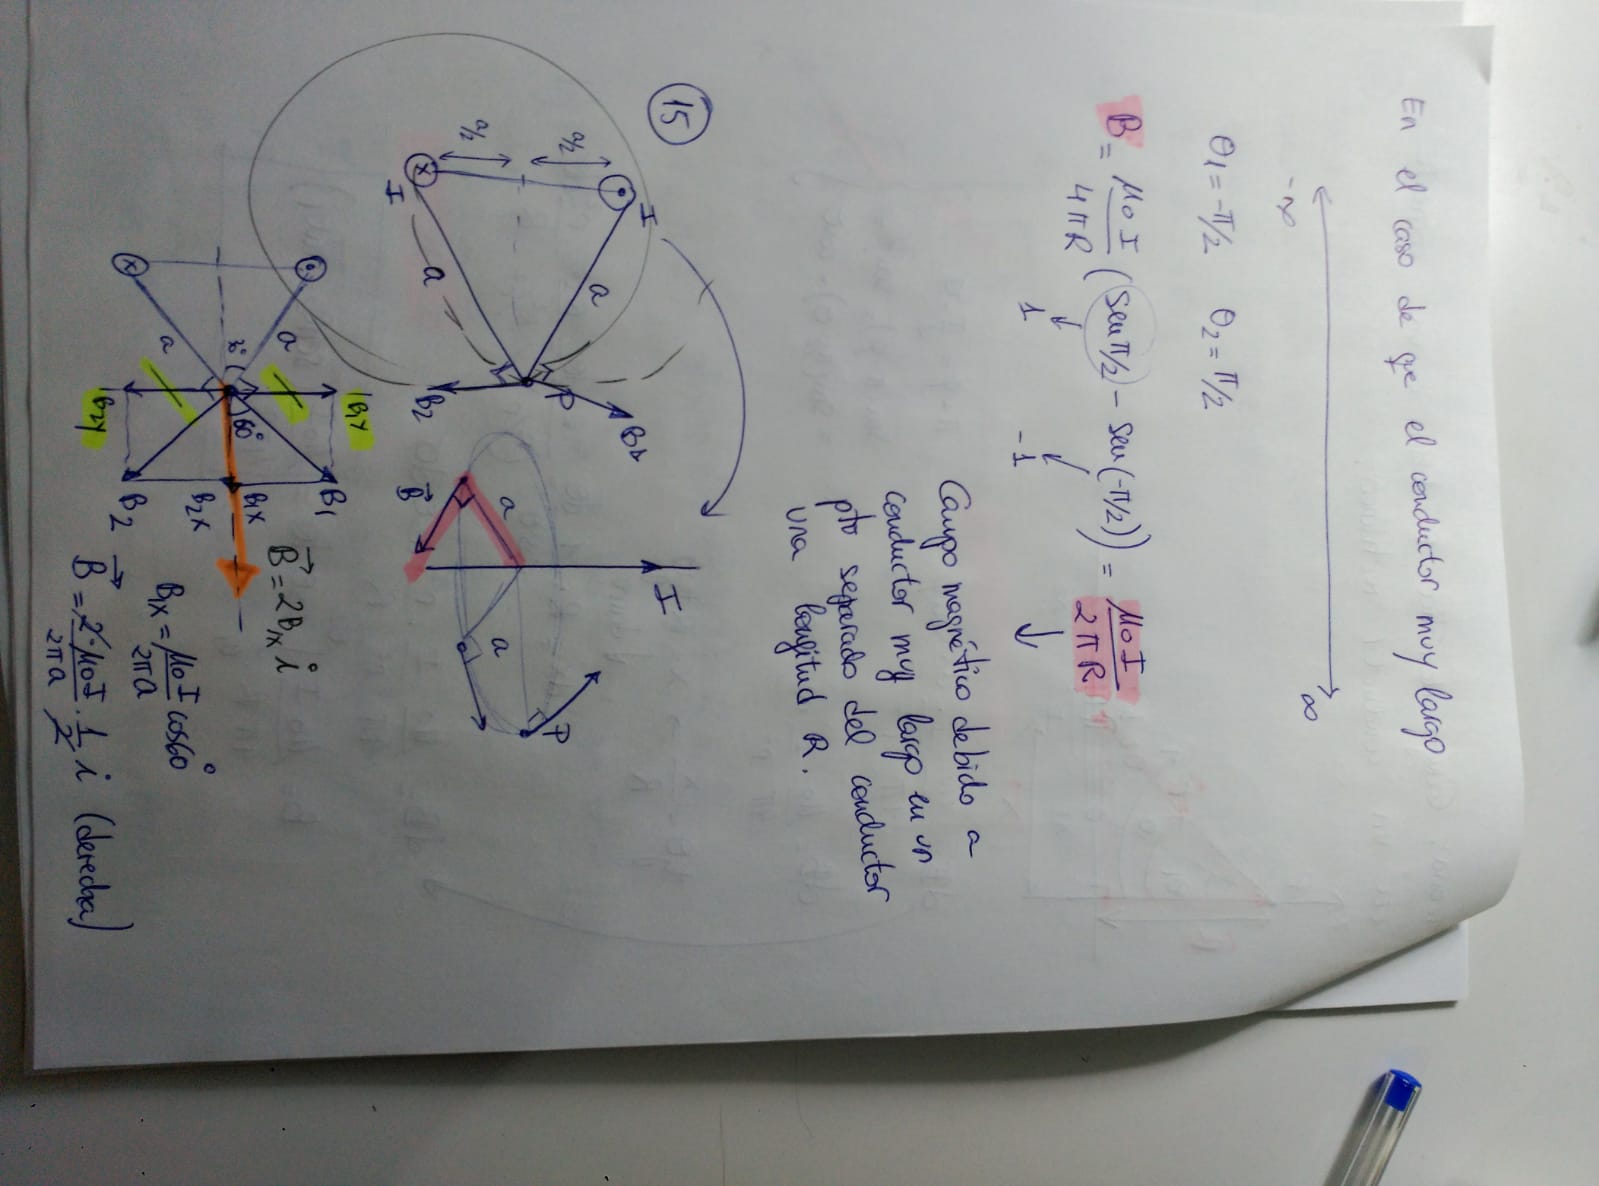 En el caso de que el conductor muy largo
-∞ ∞
θ1 = -π/2 θ2 = π/2
B = μ0 I / 4πR (sen π/2 - sen(-π/2)) = μ0 I / 2πR
1 -1
Campo magnético debido a
conductor muy largo en un
pto separado del conductor
una longitud R.
15
a/2 a/2
I I
a a
P
B2 B1
I
a a
B⃗
P
a a
30° 60°
B1y
B2y
B1
B1x
B2x
B2
B⃗ = 2B1x i
B1x = μ0 I / 2πa cos60°
B⃗ = 2·μ0 I / 2πa · 1/2 i (derecha)